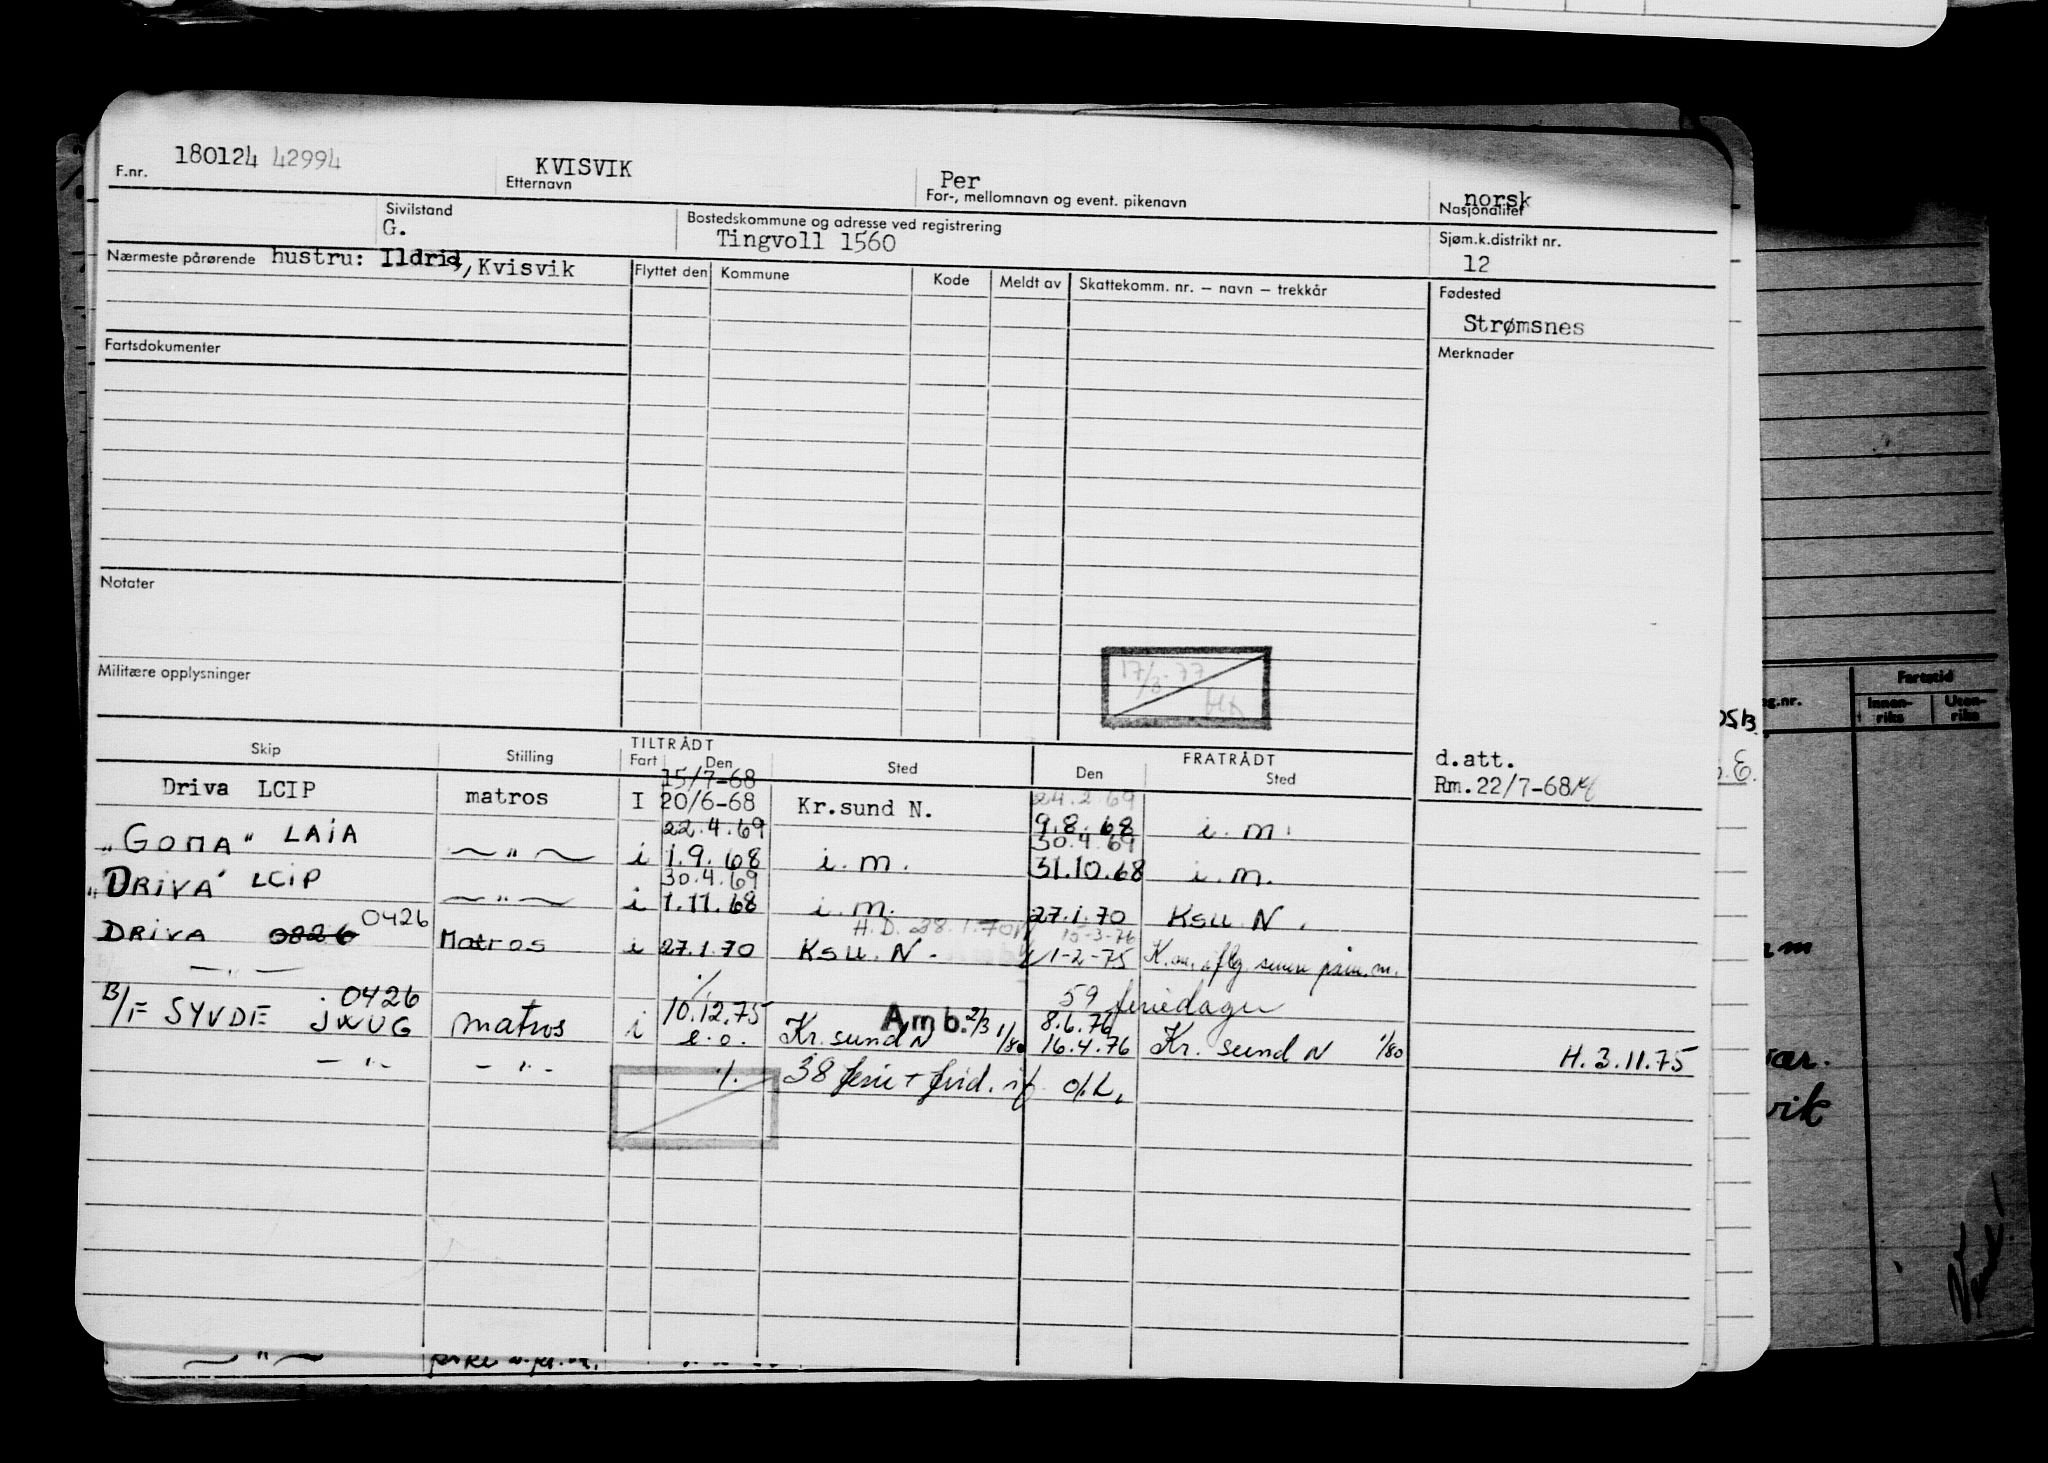 F.nr. 180124 42994
KVISVIK
Etternavn
Per
For-, mellomnavn og event. pikenavn
norsk
Nasjonalitet
Sivilstand
G.
Bostedskommune og adresse ved registrering
Tingvoll 1560
Sjøm.k.distrikt nr.
12
Nærmeste pårørende hustru: Ildrid, Kvisvik
Flyttet den Kommune Kode Meldt av Skattekomm. nr. – navn – trekkår
Fødested
Strømsnes
Fartsdokumenter
Merknader
Notater
17/3-77
HK
Militære opplysninger
TILTRÅDT FRATRÅDT
Skip Stilling Fart Den Sted Den Sted
d.att.
Rm.22/7-68
15/7-68 24.2.69
Driva LCIP matros I 20/6-68 Kr.sund N. 9.8.68 i.m.
22.4.69 30.4.69
"GOMA" LAIA — " — i 1.9.68 i.m. 31.10.68 i.m.
30.4.69
"DRIVA" LCIP — " — i 1.11.68 i.m. 27.1.70 KSU.N.
0426 H.D. 28.1.70 15-3-76
DRIVA 0826 Matros i 27.1.70 KSU.N. 1-2-75 K.
— " — ./. 59 feriedager
0426 10.12.75 Amb. 2/3 8.6.76
B/F SYVDE JWUG matros i e.o. Kr.sund N 1/80 16.4.76 Kr. sund N 1/80 H.3.11.75
— " — — " — ./. 38 ferie + frid. if. o/L.
05B
.E.
g.nr. Fartstid
Innen-riks Uten-riks
m
vær.
vik
— " —